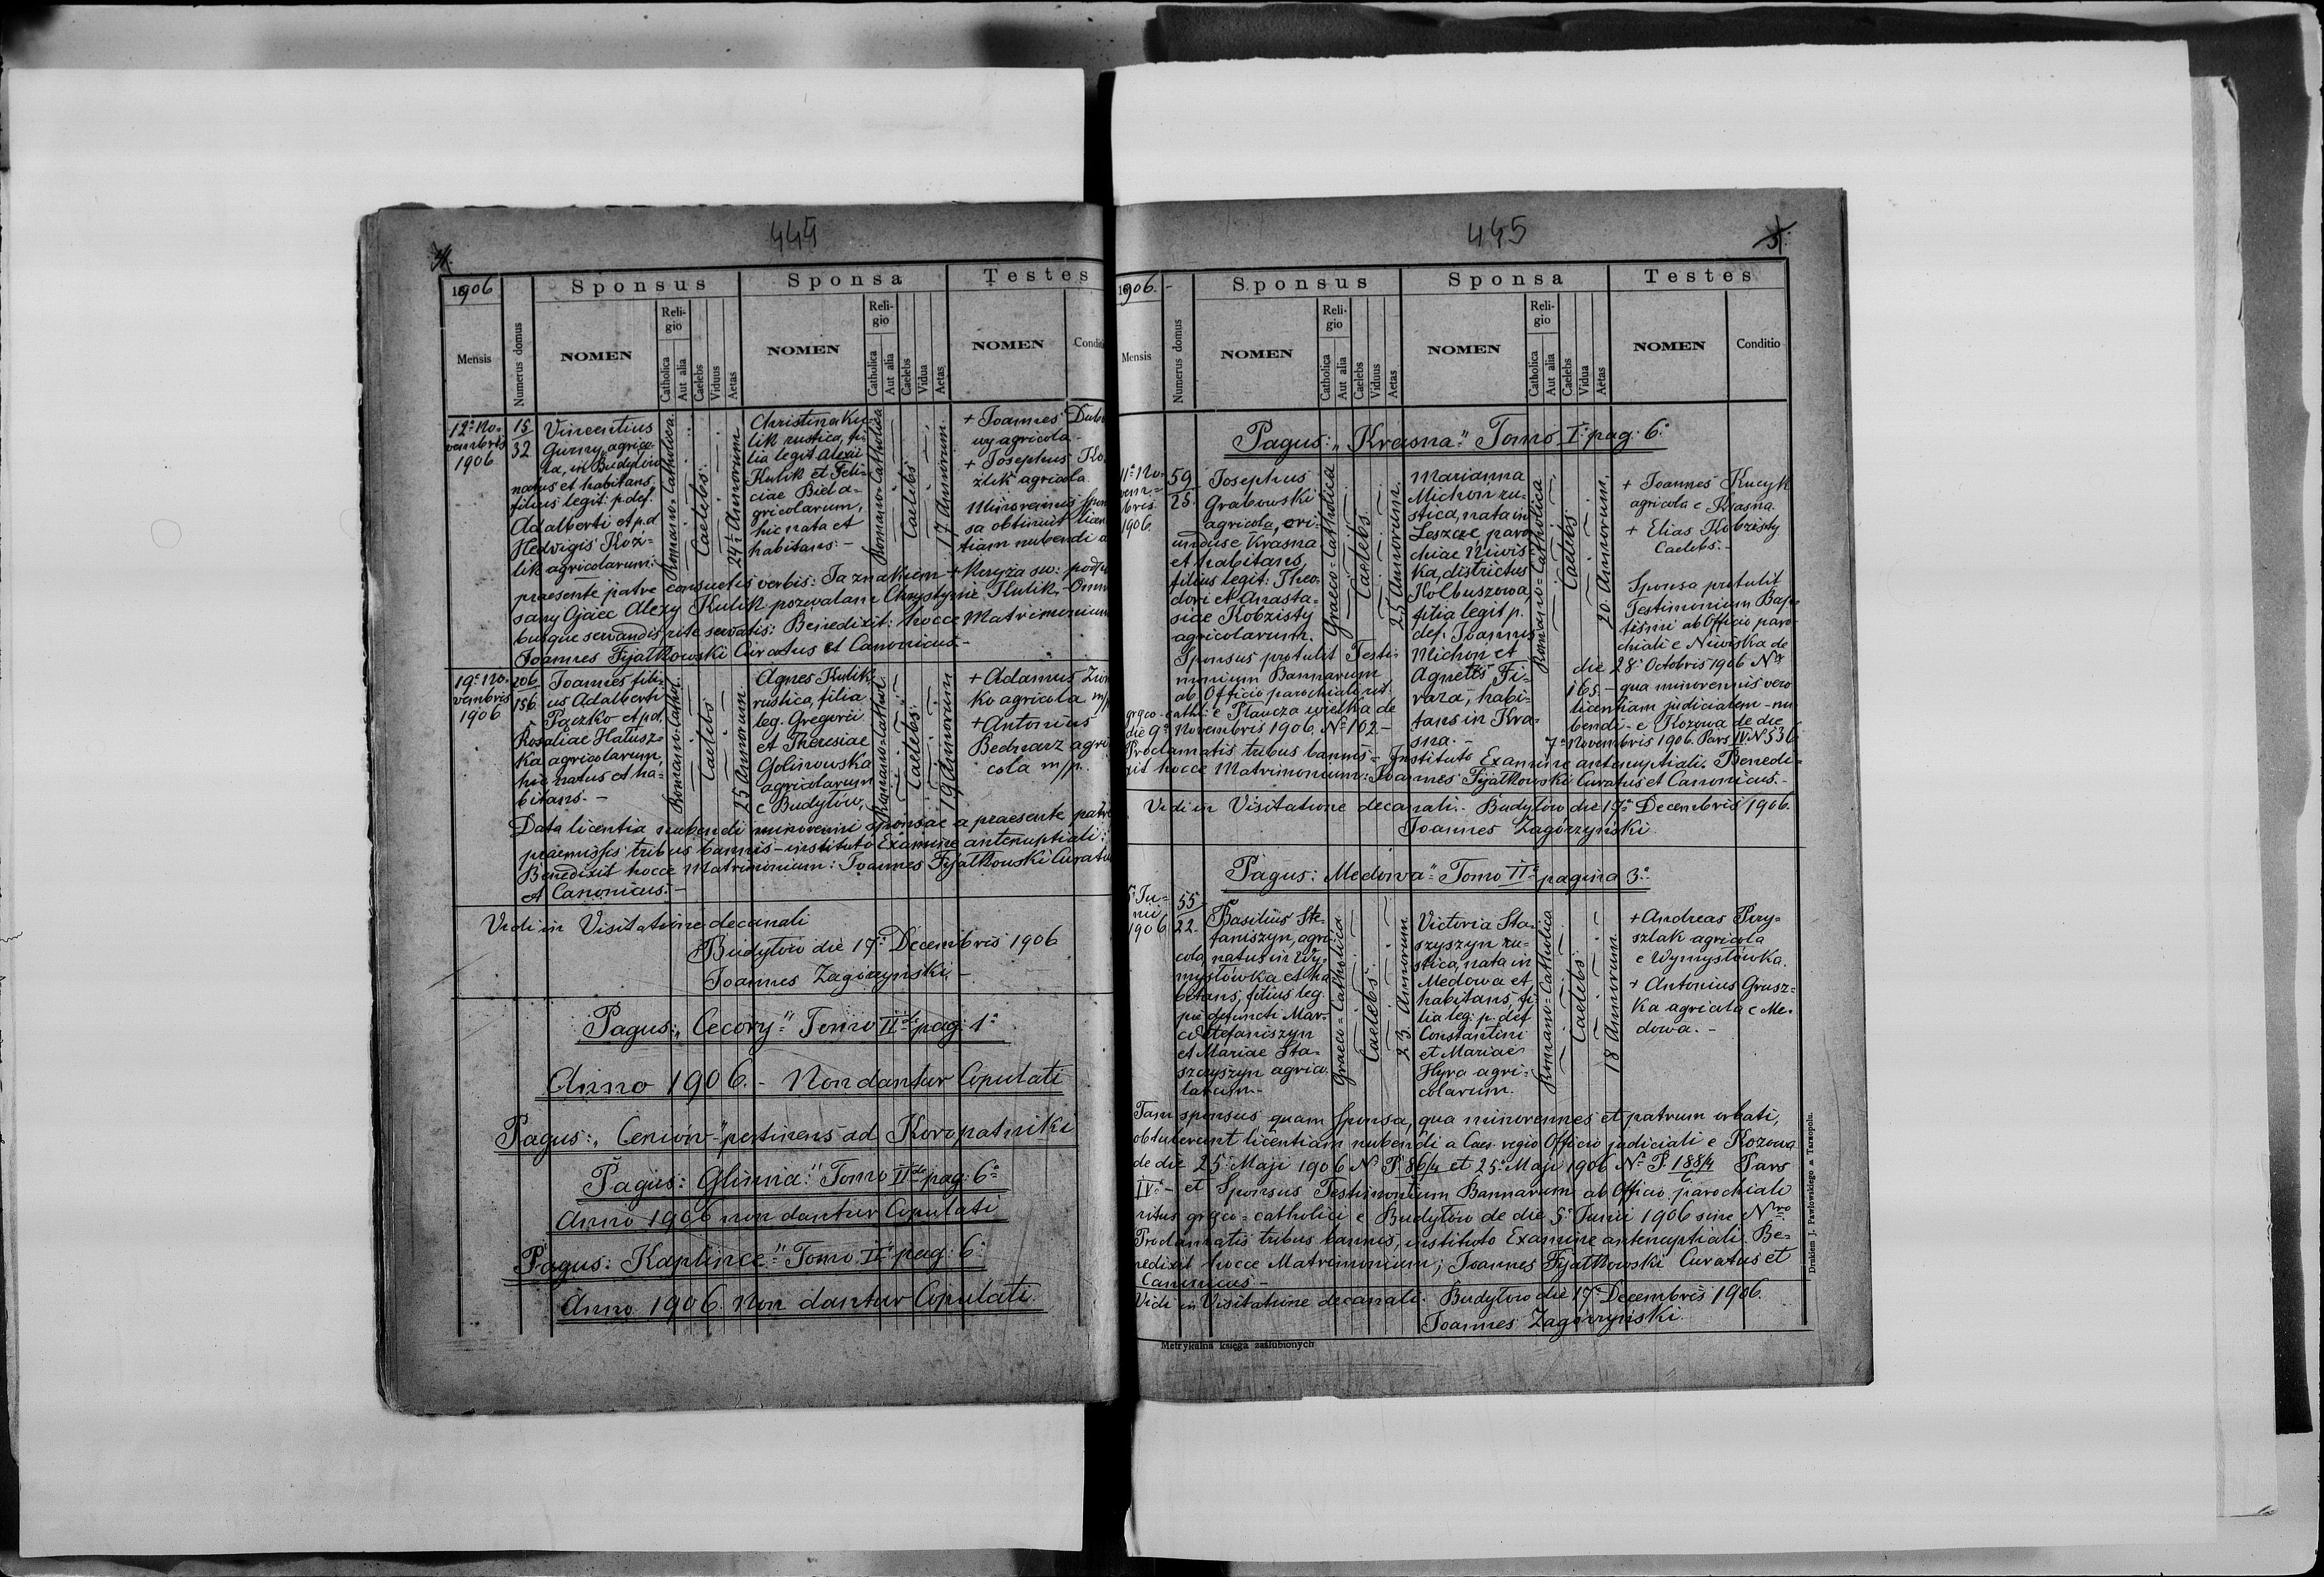 444
1906
Sponsus
Sponsa
Testes
Mensis
Numerus domus
NOMEN
Religio
Catholica
Aut alia
Caelebs
Viduus
Aetas
NOMEN
Religio
Catholica
Aut alia
Caelebs
Vidua
Aetas
NOMEN
12a No-
vembris
1906
15
32
Vincentius
agrico-
la, in Budyłów
natus et habitans,
filius legit: p. def.
Adalberti et p.d.
Hedvigis Koź-
lik agricolarum:
Romano-Catholica.
Caelebs.
24 Annorum
Christina Ku-
lik rustica, fi-
lia legit. Alexii
Kulik et Feli-
ciae Bida a-
gricolarum,
hic nata et
habitans.-
Romano-Catholica
Caelebs
17 Annorum.
+ Joannes
agricola -
+ Josephus Ko-
źlik agricola
Minorennis spon-
sa obtinuit licen-
tiam nubendi a
praesente patre consuetis verbis: Ja znakiem + Krzyża św: podpi-
sany Ojciec Alexy Kulik pozwalam Chrystynie Kulik.- Omni-
busque servandis rite servatis: Benedixit: hocce Matrimonium
Joannes Fijałkowski Curatus et Canonicus.-
19a No-
vembris
1906
206
156
Joannes fili-
us Adalberti
Pączko et p.d.
Rosaliae Hałusz-
ka agricolarum,
hic natus et ha-
bitans.-
Romano-Cathol.
Caelebs
25 Annorum
Agnes Kulik
rustica, filia
leg. Gregorii
et Theresiae
Golinowska
agricolarum
e Budyłów,
Romano-Cathol.
Caelebs.
19 Annorum
+ Adamus
ko agricola m/p
+ Antonius
Bednarz agri-
cola m/p.
Data licentia nubendi minorenni sponsae a praesente patre
praemissis tribus bannis - instituto Examine antenuptiali:
Benedixit hocce Matrimonium: Joannes Fijałkowski Curatus
et Canonicus.-
Vidi in Visitatione decanali
Budyłów die 17a Decembris 1906
Joannes Zagórzyński -
Pagus: „Cecory" Tomo II pag: 1a
Anno 1906.- Non dantur Copulati
Pagus: „Ceniów" pertinens ad Koropatniki
Pagus: Glinna" Tomo II pag: 6a
Anno 1906 non dantur Copulati
Pagus: Kaplince" Tomo II pag: 6
Anno 1906. Non dantur Copulati.
445
1906.-
Sponsus
Sponsa
Testes
Mensis
Numerus domus
NOMEN
Religio
Catholica
Aut alia
Caelebs
Viduus
Aetas
NOMEN
Religio
Catholica
Aut alia
Caelebs
Vidua
Aetas
NOMEN
Conditio
Pagus: „Krasna" Tomo I pag: 6a
11a No-
vem-
bris
1906.
59
25.
Josephus
Grabowski
agricola, ori-
undus e Krasna
et habitans
filius legit: Theo-
dori et Anasta-
siae Kobzisty
agricolarum.
Sponsus protulit Testi-
monium Bannarum
ab Officio parochiali rit.
graeco-cathl: e Płaucza wielka de
die 9a Novembris 1906. No 102.-
Graeco-Catholica
Caelebs.
25 Annorum.
Marianna
Michon ru-
stica, nata in
Leszcze, paro-
chiae Niwis-
ka, districtus
Kolbuszowa
filia legit p.
def. Joannis
Michon et
Agnetis Fi-
rara, habi-
tans in Kra-
sna.-
Romano-Catholica
Caelebs.
20. Annorum,
+ Joannes Kucyk
agricola e Krasna.
+ Elias Kobzisty
Caelebs.-
Sponsa protulit
Testimonium Bap-
tismi ab Officio paro-
chiali e Niwiska de
die 28a Octobris 1906 No
165.- qua minorennis vero
licentiam judicialem - nu-
bendi - e Kozowa de die
7a Novembris 1906. Pars IV. N 536
Proclamatis tribus bannis - Instituto Examine antenuptiali. Benedi-
xit hocce Matrimonium: Joannes Fijałkowski Curatus et Canonicus.-
Vidi in Visitatione decanali. Budyłów die 17a Decembris 1906.
Joannes Zagórzyński
Pagus: Medowa" Tomo II pagina 3a
5a Ju-
nii
1906
55
22.
Basilius Ste-
faniszyn, agri-
cola natus in Wy-
mysłówka et ha-
bitans, filius leg.
pie defuncti Mar-
ci Stefaniszyn
et Mariae Sta-
szczyszyn agrico-
larum.-
Graeco-Catholica
Caelebs.
23. Annorum
Victoria Sta-
szyszyn ru-
stica, nata in
Medowa et
habitans, fi-
lia leg: p. def
Constantini
et Mariae
Hyra agri-
colarum.
Romano-Catholica
Caelebs
18 Annorum.
+ Andreas Przy-
szlak agricola
e Wymysłówka.
+ Antonius Grusz-
ka agricola e Me-
dowa.-
Tam sponsus quam sponsa, qua minorennes et patrum orbati,
obtulerunt licentiam nubendi a Caes. regio Officio judiciali e Kozowa
de die 25a Maji 1906 No P. 86/4 et 25a Maji 1906 No P. 188/4 Pars
IV.- et Sponsus Testimonium Bannarum ab Officio parochiali
ritus graeco-catholici e Budyłów de die 5a Junii 1906 sine Nro
Proclamatis tribus bannis, instituto Examine antenuptiali. Be-
nedixit hocce Matrimonium; Joannes Fijałkowski Curatus et
Canonicus -
Vidi in Visitatione decanali. Budyłów die 17a Decembris 1906.
Joannes Zagórzyński.
Metrykalna księga zaślubionych
Drukiem J. Pawłowskiego w Tarnopolu.